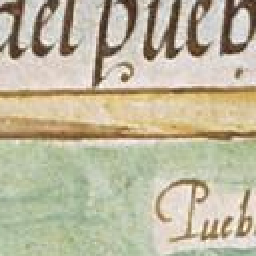 del pueb
Pueb